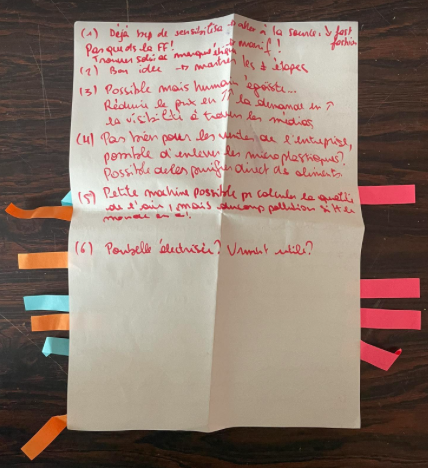 (1) Déjà trop de sensibilisa° aller à la source, ↘ fast fashion
Pas que ds la FF! → manif!
Trouver solu° ac marque éthique
(2) Bon idée → montrer les ≠ étapes
(3) Possible mais humain égoïste...
Réduire le prix en ↑↑ la demande en ↑
la visibilité à travers les médias
(4) Pas bien pour les ventes de l'entreprise,
possible d'enlever les microplastiques?
Possible de les purifier direct de aliments
(5) Petite machine possible pr calculer la qualité
de l'air, mais beaucoup pollution si tt le
monde en a!
(6) Poubelle électrisée? Vrmnt utile?